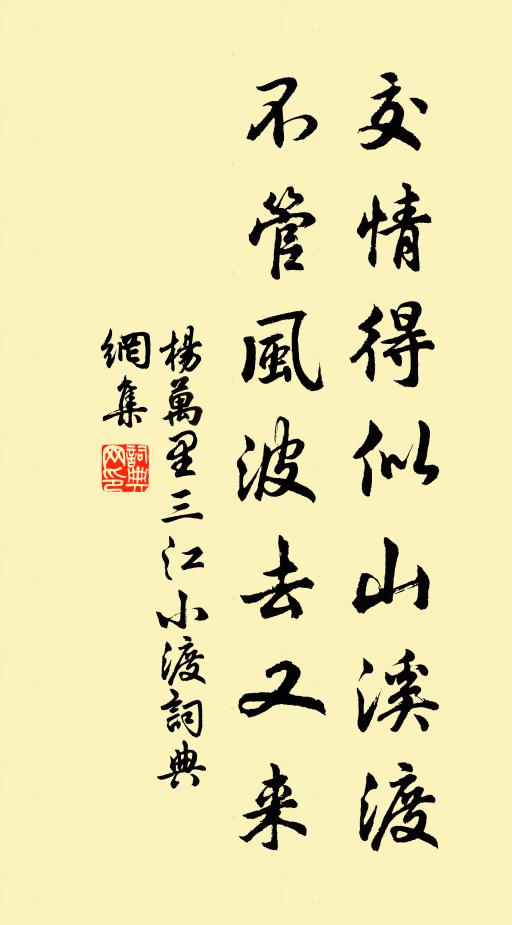 交情得似山溪渡
不管風波去又来
楊萬里三江小渡詞典
網集
詞典
网印